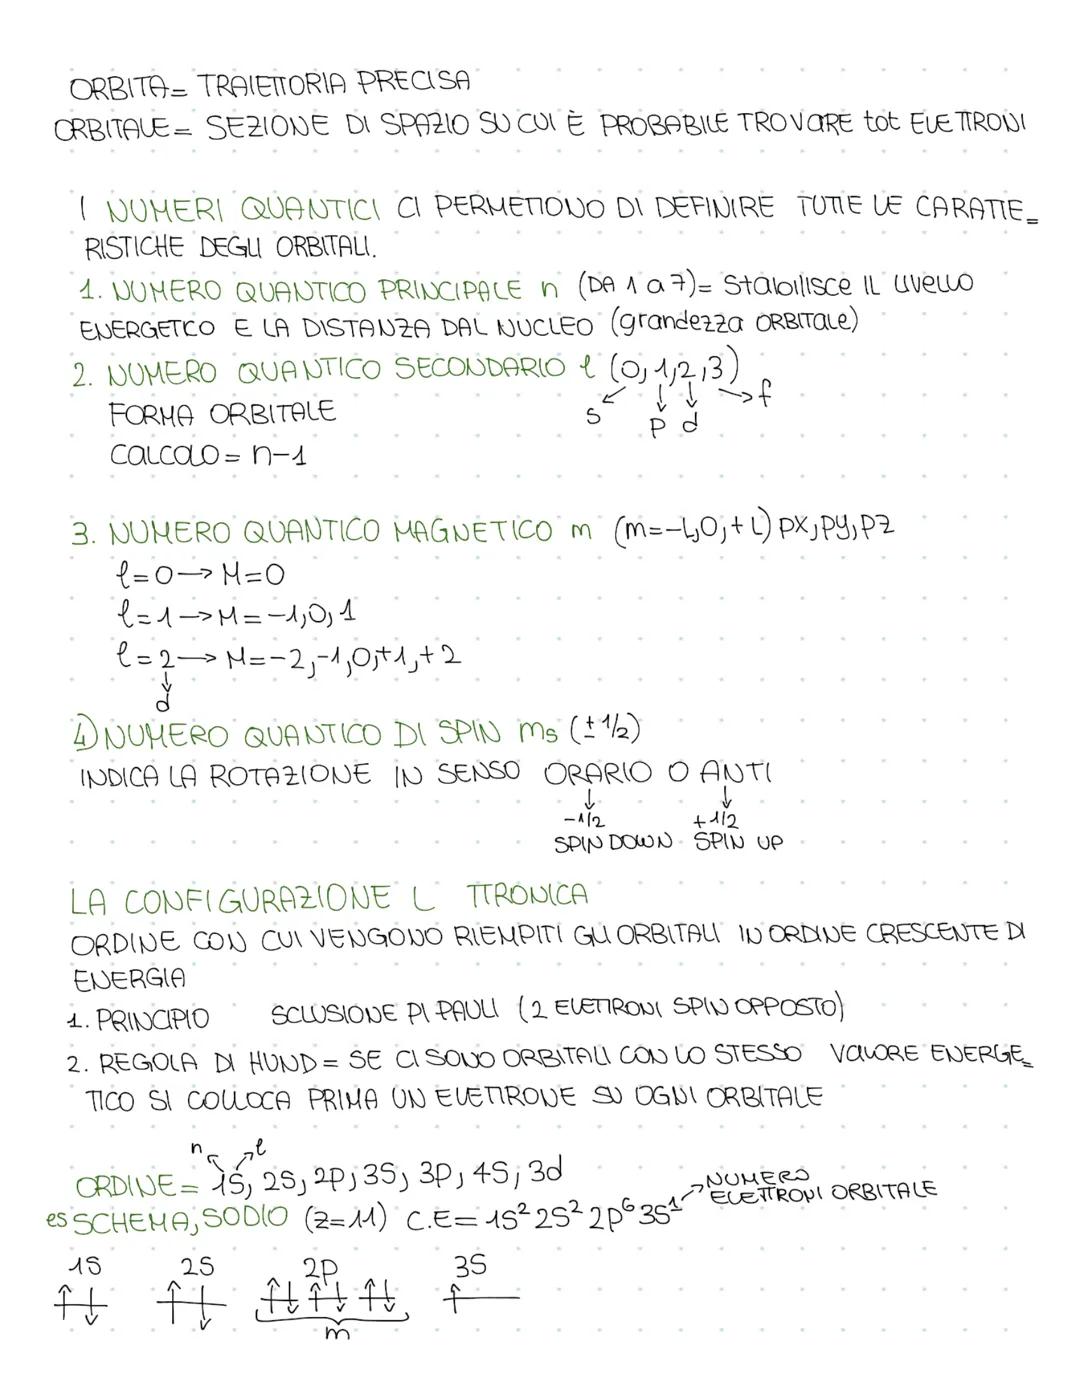 ORBITA= TRAIETTORIA PRECISA
ORBITALE= SEZIONE DI SPAZIO SU CUI È PROBABILE TROVARE tot ELETTRONI
I NUMERI QUANTICI CI PERMETTONO DI DEFINIRE TUTTE LE CARATTE=
RISTICHE DEGLI ORBITALI.
1. NUMERO QUANTICO PRINCIPALE n (DA 1 a 7)= Stabilisce IL livello
ENERGETCO E LA DISTANZA DAL NUCLEO (grandezza ORBITALE)
2. NUMERO QUANTICO SECONDARIO l (0,1,2,3)
s p d f
FORMA ORBITALE
CALCOLO= n-1
3. NUMERO QUANTICO MAGNETICO m (m=-L,0,+L) px,py,pz
l=0→M=0
l=1→M=-1,0,1
l=2→M=-2,-1,0,+1,+2
d
4)NUMERO QUANTICO DI SPIN ms (±1/2)
INDICA LA ROTAZIONE IN SENSO ORARIO O ANTI
-1/2 +1/2
SPIN DOWN SPIN UP
LA CONFIGURAZIONE L TTRONICA
ORDINE CON CUI VENGONO RIEMPITI GLI ORBITALI IN ORDINE CRESCENTE DI
ENERGIA
1. PRINCIPIO SCLUSIONE PI PAULI (2 ELETTRONI SPIN OPPOSTO)
2. REGOLA DI HUND= SE CI SONO ORBITALI CON LO STESSO VALORE ENERGE=
TICO SI COLLOCA PRIMA UN ELETTRONE SU OGNI ORBITALE
n l
ORDINE= 1S, 2S, 2p, 3S, 3p, 4S, 3d
→NUMERO
ELETTRONI ORBITALE
es SCHEMA, SODIO (Z=11) C.E= 1S² 2S² 2p⁶ 3S¹
1S 2S 2p 3S
m